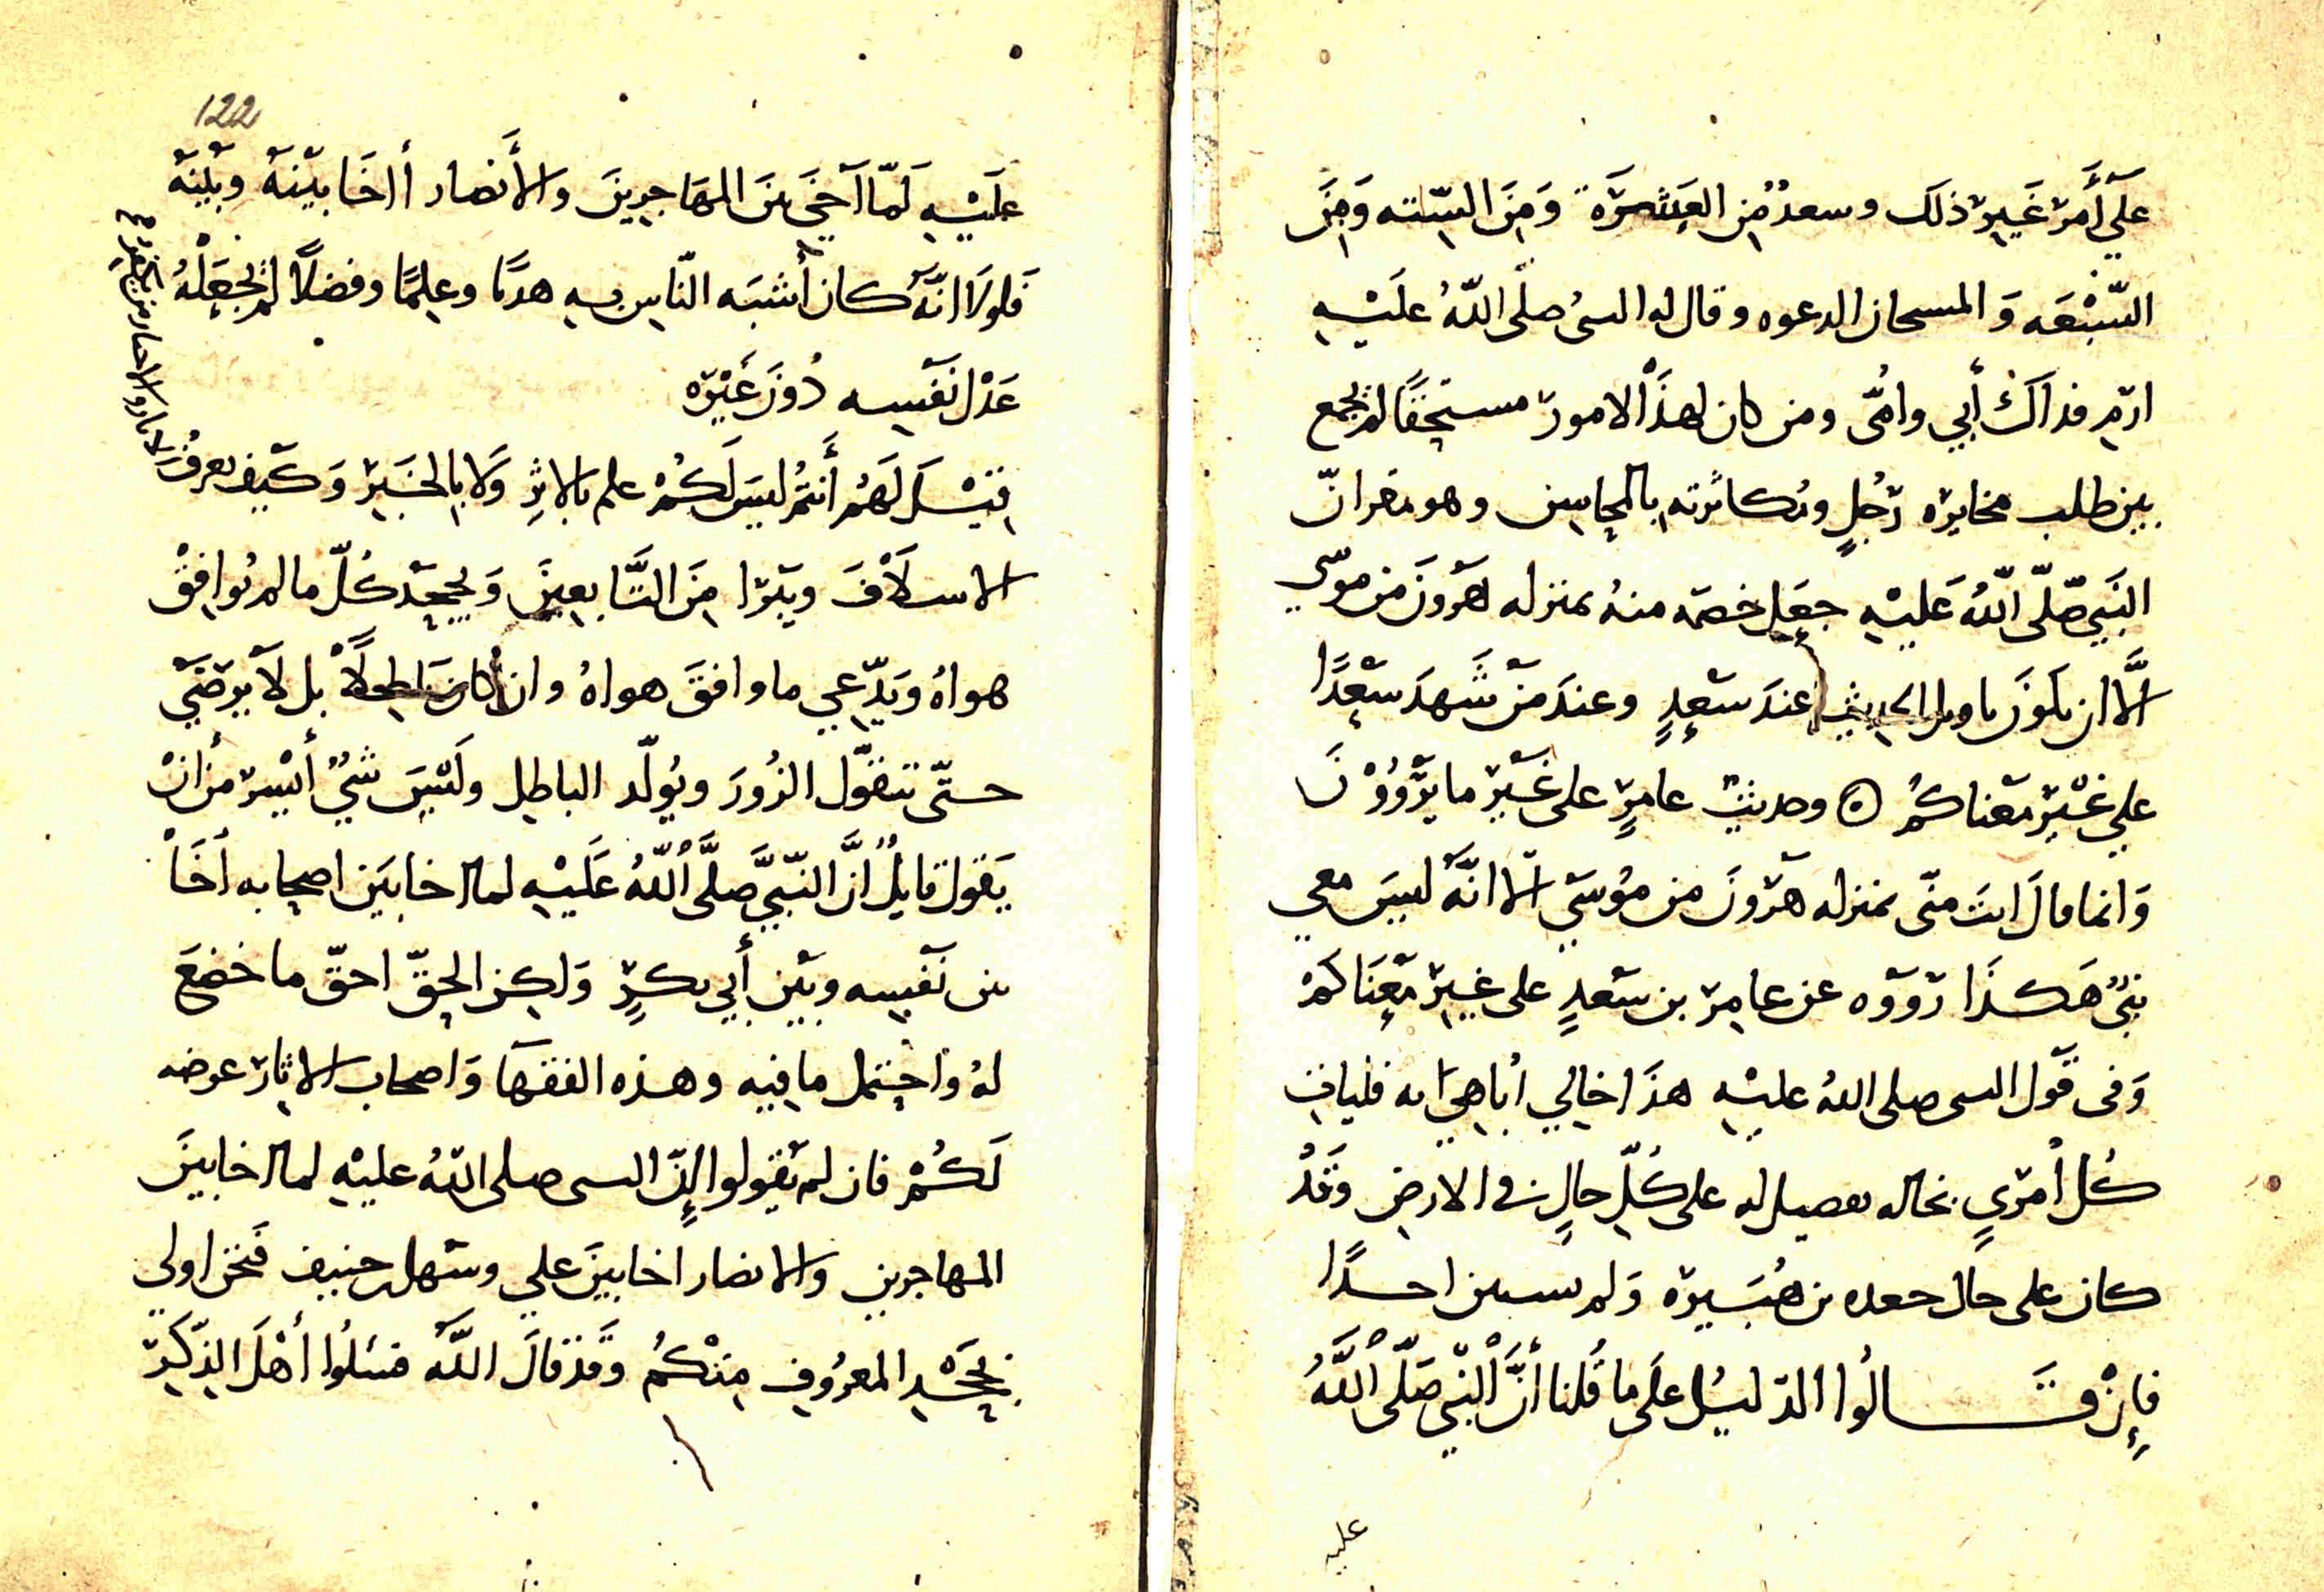 علي أمر غير ذلك وسعد من العشرة ومن الستة ومن
السبعه والمستجاب الدعوه وقال له النبي صلى الله عليه
ارم فداك أبي وأمي ومن كان لهذه الامور مستحقا لم يجمع
بين طلب مخايره رجل ومكاثرته بالمحاسن وهو مقر ان
النبي صلى الله عليه جعل خصمه منه بمنزله هرون من موسى
الا ان يكون تاويل الحديث عند سعد وعند من شهد سعدا
علي غير معناكم ۞ وحديث عامر على غير ما يروون
وانما قال انت مني بمنزله هرون من موسي الا انه ليس معي
نبي هكذا رووه عن عامر بن سعد على غير معناكم
وفى قول النبي صلى الله عليه هذا خالي أباهي به فليات
كل أمري بخاله تفضيل له على كل حال في الارض وقد
كان على خال جعده بن هبيره ولم احدا
فإن قالوا الدليل على ما قلنا أن النبي صلى الله
عليه
122
عليه لما آخي بين المهاجرين والأنصار أاخا بينه وبينه
فلولا انه كان أشبه الناس به هديا وعلما وفضلا لم يجعله
عدل نفسه دون غيره
فيسل لهم أنتم ليس لكم علم بالاثر ولا بالخبر وكيف يعرف
الاسلاف ويبرا من التابعين ويجحد كل ما لم يوافق
هواه ويدعي ما وافق هواه وان كان باطلا بل لا يرضي
حتى يتقول الزور ويولد الباطل وليس شي أيسر من ان
يقول قايل ان النبي صلى الله عليه لما اخا بين اصحابه أخا
بين نفسه وبين أبي بكر ولكن الحق احق ما خضع
له واحتمل ما فيه وهذه الفقها واصحاب الاثار عرضه
لكم فان لم يقولوا إن النبي صلى الله عليه لما اخا بين
المهاجرين والانصار اخا بين علي وسهل بن حنيف فنحن اولي
بجحد المعروف منكم وقد قال الله فسئلوا أهل الذكر